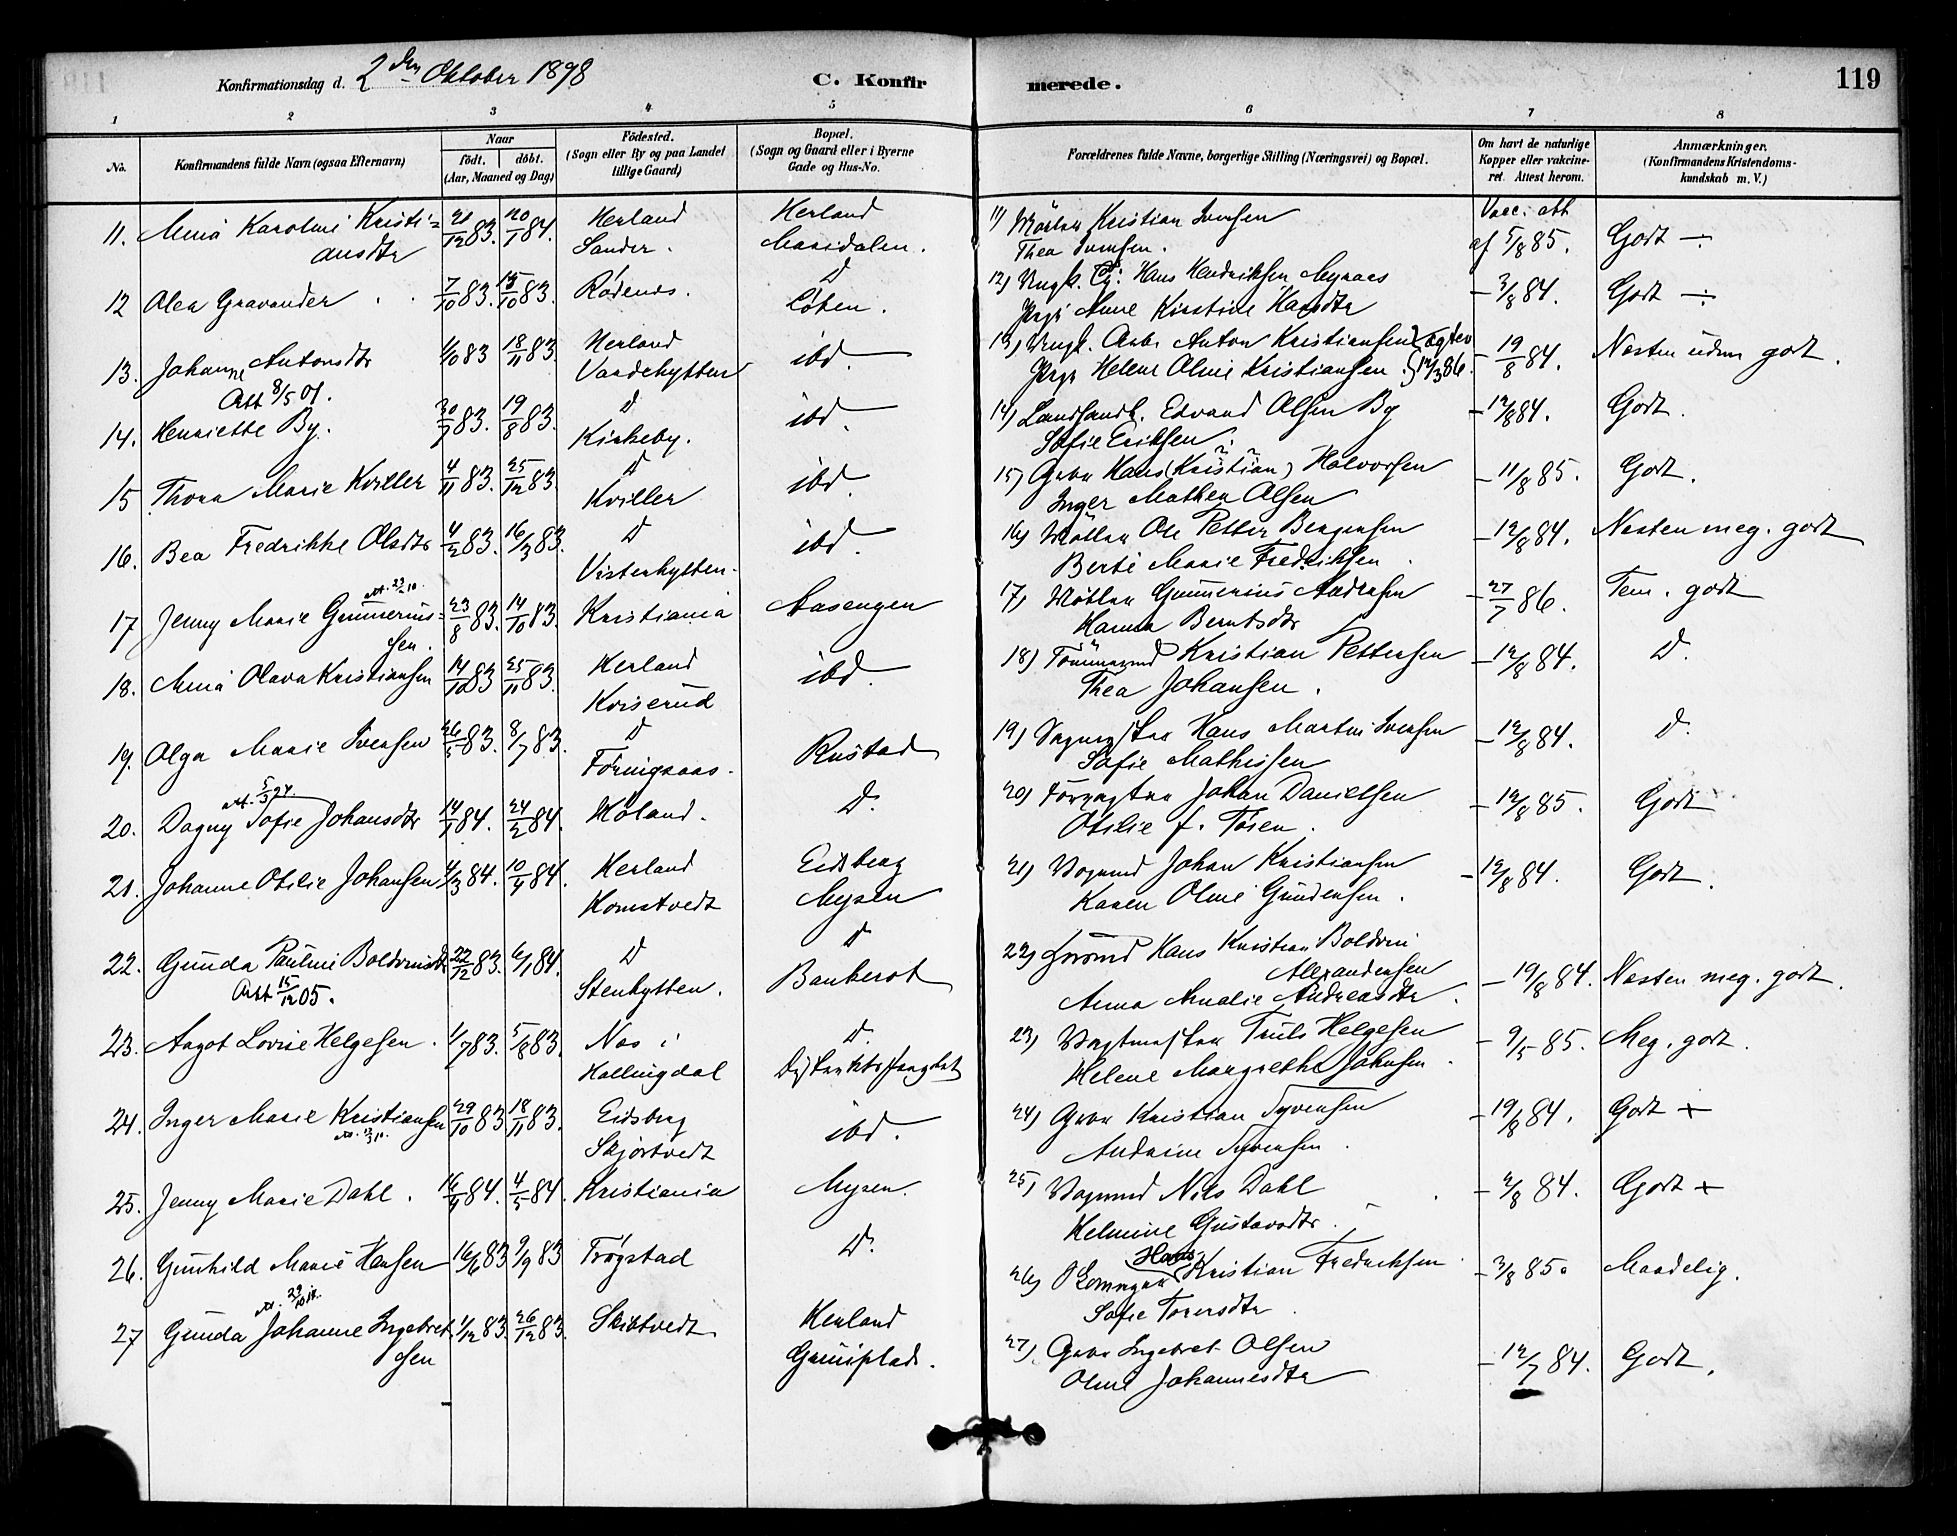 Konfirmationsdag d. 2den Oktober 1898
C. Konfir
merede.
119
1 2 3 4 5 6 7 8
No.
Konfirmandens fulde Navn (ogsaa Efternavn)
Naar
født. døbt.
(Aar, Maaned og Dag)
Fødested.
(Sogn eller By og paa Landet
tillige Gaard)
Bopæl.
(Sogn og Gaard eller i Byerne
Gade og Hus-No.
Forældrenes fulde Navne, borgerlige Stilling (Næringsvei) og Bopæl.
Om havt de naturlige
Kopper eller vakcine-
ret. Attest herom.
Anmærkninger.
(Konfirmandens Kristendoms-
kundskab m. V.)
11. Anna Karoline Kristi=
ansdtr
21/12 83. 20/1 84.
Herland
Sander.
Herland
Mariedalen.
11) Kristian Svensen
Thea Svensen.
Vacc. att
af 5/8 85.
Godt
12 Olea Gravander
7/10 83. 15/10 83.
Rødenes.
D
Løken.
12) Ungk. Hans Hendriksen Mynaes
Pige Anne Kirstine Hansdtr
3/8 84.
Godt
13. Johanne Antonsdtr
Att 8/5 01.
1/10 83 18/11 83.
Herland
Vandehytten
ibd.
13) Ungk. Arb. Anton Kristiansen
Pige Helene Oline Kristiansen
19/8 84.
Næsten udm godt.
14. Henriette By.
30/7 83. 19/8 83.
D
Kirkeby.
ibd.
14) Landhandl. Edvard Olsen By
Sofie Eriksen
12/8 84.
Godt.
15 Thora Marie Kviller
4/11 83. 25/12 83.
D
Kviller
ibd.
15) Gbr Hans (Kristian) Halvorsen
Inger Mathea Olsen
11/8 85.
Godt.
16. Bea Fredrikke Olsdtr
4/2 83. 16/3 83.
D
Visterhytten.
ibd.
16) Møller Ole Petter Bengensen
Berte Marie Fredriksen.
12/8 84.
Næsten meg. godt
17 Jenny Marie Gunnerius=
sen.
23/8 83. 14/10 83.
Kristiania
Aasengen
17) Møller Gunnerius Andersen
Hanna Berntsdtr
27/7 86.
Tem. godt
18. Anna Olava Kristiansen
14/10 83 25/11 83.
Herland
Kviserud
ibd.
18) Tømmermd Kristian Pettersen
Thea Johansen.
12/8 84.
D.
19. Olga Marie Svensen
26/5 83. 8/7 83.
D
Føringsaas.
Rustad
19) Hans Martin Svensen
Sofie Mathissen
12/8 84.
D.
20. Dagny Sofie Johansdtr
14/1 84. 24/2 84.
Høland.
D.
20) Forpagter Johan Danielsen
Otilie f. Tosen.
12/8 85.
Godt
21. Johanne Otilie Johansen
4/3 84. 10/4 84.
Herland
Homstvedt
Eidsberg
Mysen
21) Vognmd Johan Kristiansen
Karen Oline Gundersen.
12/8 84.
Godt.
22. Gunda Pauline Boldvinsdtr
Att 15/12 05.
22/12 83. 6/1 84.
D
Stenhytten.
D
Bankerot
22) Hans Kristian Boldvin
Alexandersen
Anna Amalie Andreasdtr.
19/8 84.
Næsten meg. godt.
23. Aagot Lovise Helgesen.
1/7 83. 5/8 83.
Nes i
Hallingdal
D.
Distriktsfængslet
23) Vagtmester Truls Helgesen
Helene Margrethe Johnsen.
9/5 85.
Meg. godt.
24. Inger Marie Kristiansen
29/10 83 18/11 83.
Eidsberg
Skjørtvedt
ibd.
24) Gbr Kristian Syversen
Andrine Syversen.
19/8 84.
Godt +
25. Jenny Marie Dahl.
16/4 84. 4/5 84.
Kristiania
Mysen.
25) Vognmd Nils Dahl
Helmine Gustavsdtr.
2/8 84.
Godt +
26. Gunhild Marie Hansen
16/6 83 9/9 83
Trøgstad
D.
26) Skomager Hans Kristian Fredriksen
Sofie Torersdtr.
3/8 85.
Maadelig.
27 Gunda Johanne Ingebret
sen
1/12 83 26/12 83.
Skibtvedt
Herland
Gruniplads.
27) Gbr Ingebret Olsen
Oline Johannesdtr
12/7 84.
Godt.